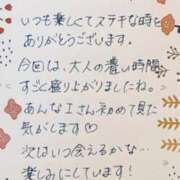 いつも楽しくてステキな時を
ありがとうございます。
今回は、大人の濃い時間
すごく盛り上がりましたね。
あんなIさん初めて見た
気がします♡
次はいつ会えるかな…
楽しみにしています!